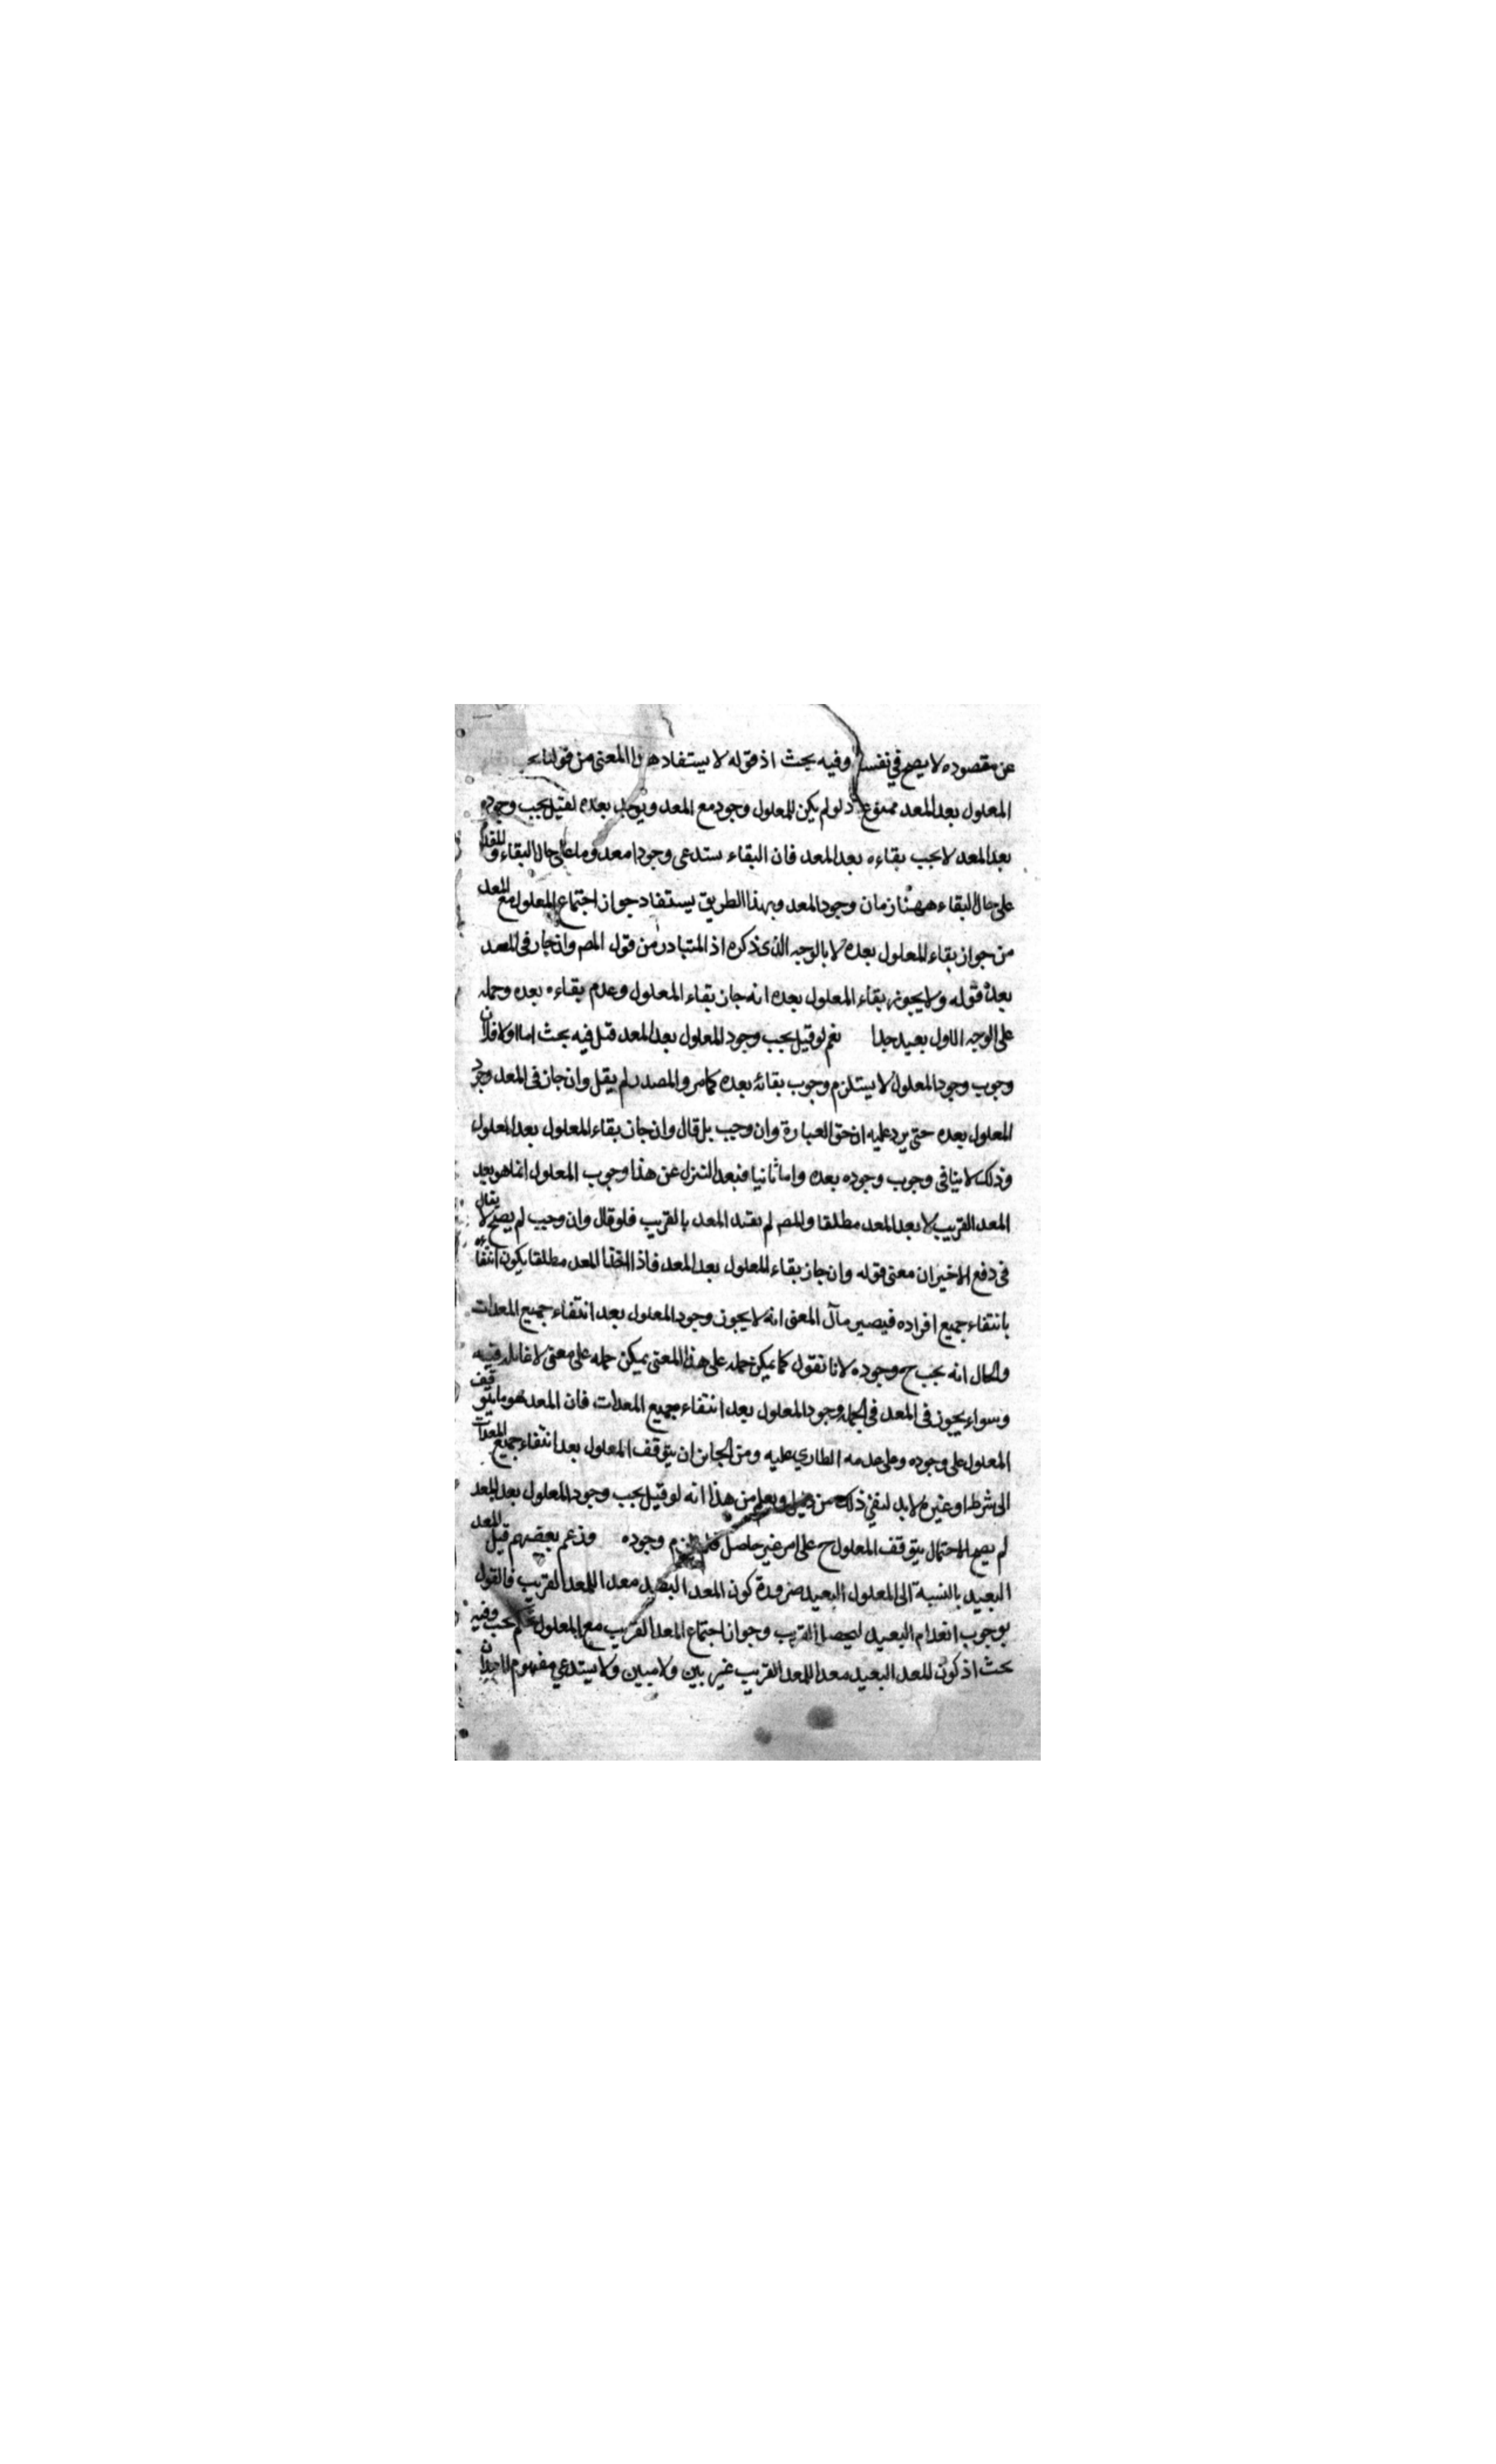 عن مقصوده لا يصح في نفسه وفيه بحث اذ قوله لا يستفاد هذا المعنى من قولنا يجب بقاء
المعلول بعد المعد ممنوع اذ لو لم يكن للمعلول وجود مع المعد ويوجد بعده لقيل يجب وجوده
بعد المعد لا يجب بقاءه بعد المعد فان البقاء ستدعى وجودا معد وما على حال البقاء و
على حال البقاء ههنا زمان وجود المعد وبهذا الطريق يستفاد جواز اجتماع المعلول مع المعد
من جواز بقاء المعلول بعده لا بالوجه الذى ذكره اذ المتبادر من قول المص وان جاز فى المعد
بعد قوله ولا يجوز بقاء المعلول بعده انه جاز بقاء المعلول وعدم بقاءه بعده وحمله
على الوجه الاول بعيد جدا نعم لو قيل يجب وجود المعلول بعد المعد قيل فيه بحث اما اولا فلان
وجوب وجود المعلول لا يستلزم وجوب بقائه بعده كما مر والمصدر لم يقل وان جاز فى المعد وجود
المعلول بعده حتى يرد عليه ان حق العبارة وان وجب بل قال وان جاز بقاء المعلول بعد المعلول
وذلك لا ينافى وجوب وجوده بعده واما ثانيا فبعد التنزل عن هذا وجوب المعلول انما هو بعد
المعد القريب لا بعد المعد مطلقا والمص لم يقيد المعد بالقريب فلو قال وان وجب لم يصح لا يقال
فى دفع الاخير ان معنى قوله وان جاز بقاء المعلول بعد المعد فاذا اخذنا المعد مطلقا يكون انتفاءه
بانتفاء جميع افراده فيصير مآل المعنى انه لا يجوز وجود المعلول بعد انتفاء جميع المعدات
والحال انه يجب ح وجوده لانا نقول كما يمكن حمله على هذا المعنى يمكن حمله على معنى لا غائلة فيه
وسواء يجوز فى المعد فى الجملة وجود المعلول بعد انتفاء جميع المعدات فان المعد هو ما يتوقف
المعلول على وجوده وعلى عدمه الطاري عليه ومن الجائز ان يتوقف المعلول بعد انتفاء جميع المعدات
الى شرط او غيره لابد لنفي ذلك من دليل ويعلم من هذا انه لو قيل يجب وجود المعلول بعد المعد
لم يصح لاحتمال يتوقف المعلول ح على امر غير حاصل فلم يلزم وجوده وزعم بعضهم قبل المعد
البعيد بالنسبة الى المعلول البعيد ضرورة كون المعد البعيد معدا للمعد القريب فالقول
بوجوب انعدام البعيد ليحصل القريب وجواز اجتماع المعد القريب مع المعلول تحكم بحت وفيه
بحث اذ كون المعد البعيد معدا للمعد القريب غير بين ولا مبين ولا يستدعي مفهوم